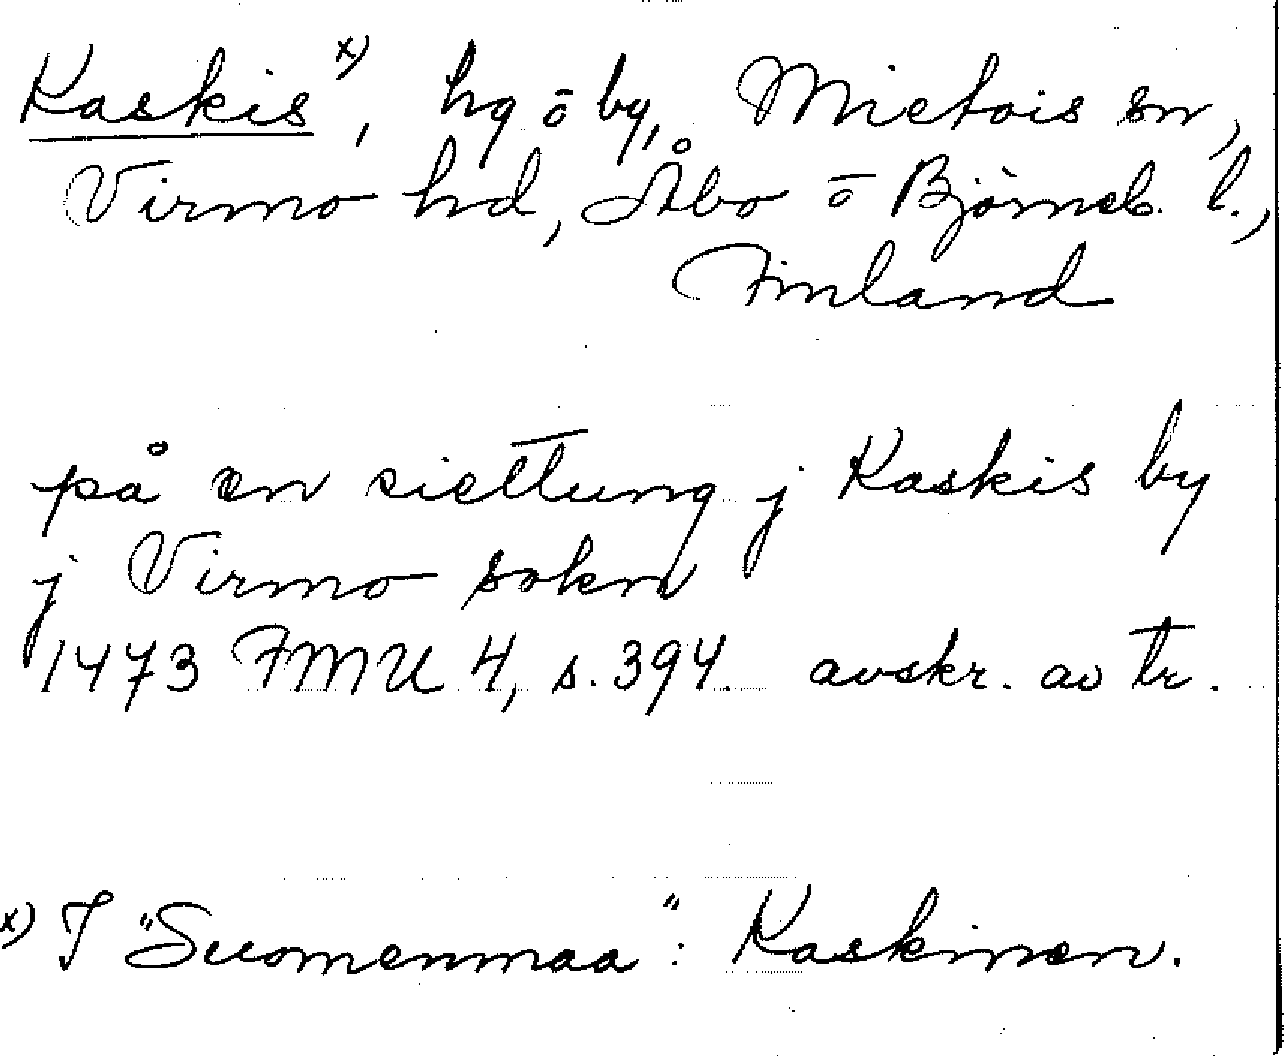 Kaskis x), hg ō by, Mietois sn,
Virmo hd, Åbo ō Björneb. l.,
Finland
på en siettung j Kaskis by
j Virmo sokn
1473 FMU 4, s. 394. avskr. av tr.
x) I "Suomenmaa": Kaskinen.